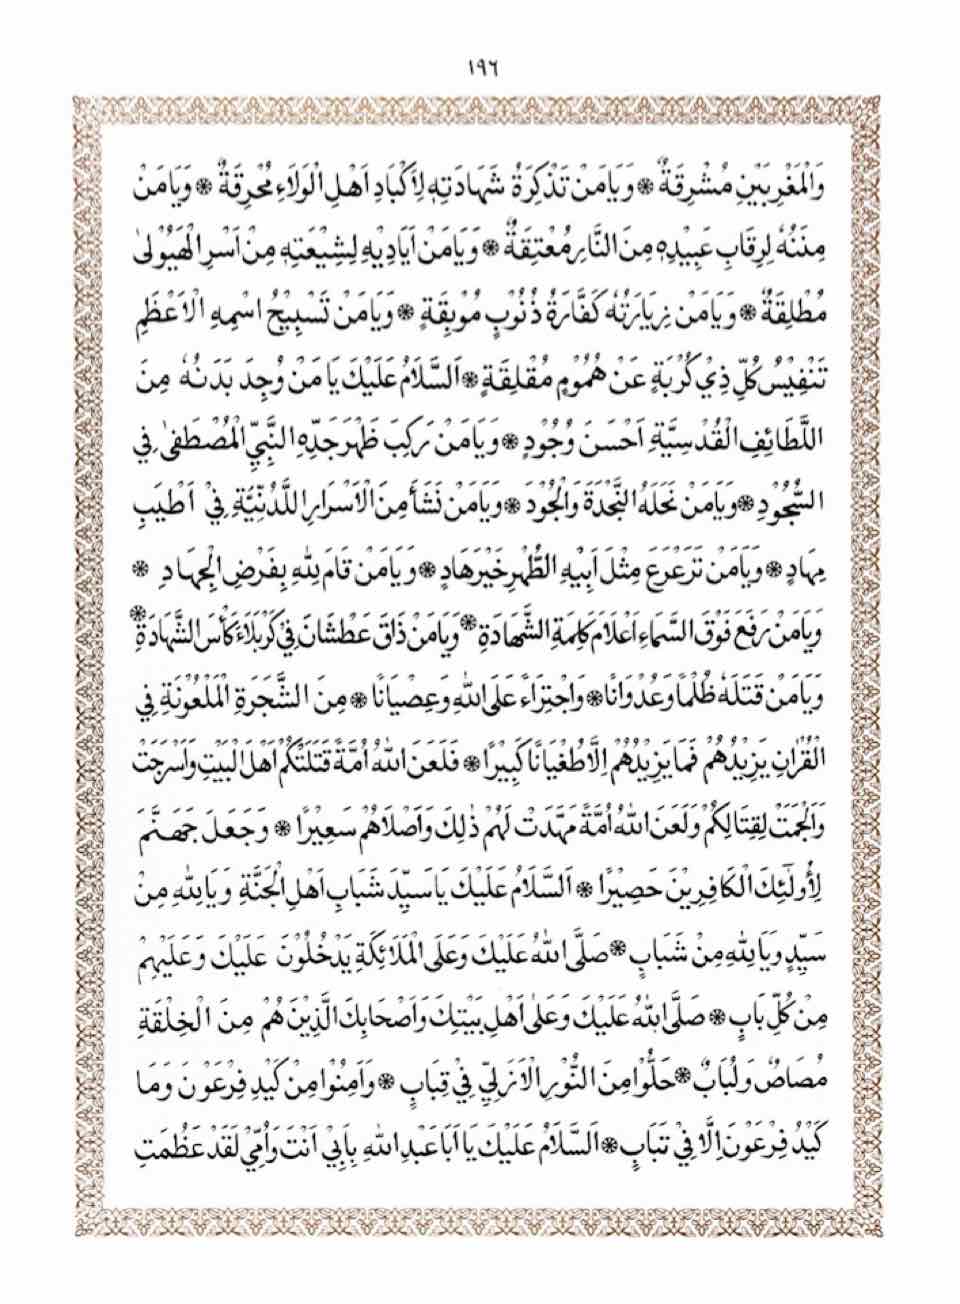 ١٩٦
وَالْمَغْرِبَيْنِ مُشْرِقَةٌ ❋ وَيَامَنْ تَذْكِرَةُ شَهَادَتِهٖ لِأَكْبَادِ اَهْلِ الْوَلَاءِ مُحْرِقَةٌ ❋ وَيَامَنْ
مِنَنُهٗ لِرِقَابِ عَبِيْدِهٖ مِنَ النَّارِ مُعْتِقَةٌ ❋ وَيَامَنْ اَيَادِيْهِ لِشِيْعَتِهٖ مِنْ اَسْرِ الْهَيُوْلىٰ
مُطْلِقَةٌ ❋ وَيَامَنْ زِيَارَتُهٗ كَفَّارَةُ ذُنُوْبٍ مُوْبِقَةٍ ❋ وَيَامَنْ تَسْبِيْحُ اسْمِهِ الْاَعْظَمِ
تَنْفِيْسُ كُلِّ ذِيْ كُرْبَةٍ عَنْ هُمُوْمٍ مُقْلِقَةٍ ❋ اَلسَّلَامُ عَلَيْكَ يَا مَنْ وُجِدَ بَدَنُهٗ مِنَ
اللَّطَائِفِ الْقُدْسِيَّةِ اَحْسَنَ وُجُوْدٍ ❋ وَيَامَنْ رَكِبَ ظَهْرَ جَدِّهِ النَّبِيِّ الْمُصْطَفىٰ فِي
السُّجُوْدِ ❋ وَيَامَنْ نَحَلَهُ النَّجْدَةَ وَالْجُوْدَ ❋ وَيَامَنْ نَشَأَ مِنَ الْاَسْرَارِ اللَّدُنِّيَّةِ فِيْ اَطْيَبِ
مِهَادٍ ❋ وَيَامَنْ تَرَعْرَعَ مِثْلَ اَبِيْهِ الطُّهْرِ خَيْرَ هَادٍ ❋ وَيَامَنْ قَامَ لِلّٰهِ بِفَرْضِ الْجِهَادِ ❋
وَيَامَنْ رَفَعَ فَوْقَ السَّمَاءِ اَعْلَامَ كَلِمَةِ الشَّهَادَةِ ❋ وَيَامَنْ ذَاقَ عَطْشَانَ فِيْ كَرْبَلَاءَ كَأْسَ الشَّهَادَةِ ❋
وَيَامَنْ قَتَلَهٗ ظُلْمًا وَعُدْوَانًا ❋ وَاجْتِرَاءً عَلَى اللّٰهِ وَعِصْيَانًا ❋ مِنَ الشَّجَرَةِ الْمَلْعُوْنَةِ فِي
الْقُرْاٰنِ يَزِيْدُهُمْ فَمَا يَزِيْدُهُمْ اِلَّا طُغْيَانًا كَبِيْرًا ❋ فَلَعَنَ اللّٰهُ اُمَّةً قَتَلَتْكُمْ اَهْلَ الْبَيْتِ وَاَسْرَجَتْ
وَاَلْجَمَتْ لِقِتَالِكُمْ وَلَعَنَ اللّٰهُ اُمَّةً مَهَّدَتْ لَهُمْ ذٰلِكَ وَاَصْلَاهُمْ سَعِيْرًا ❋ وَجَعَلَ جَهَنَّمَ
لِأُولٰٓئِكَ الْكَافِرِيْنَ حَصِيْرًا ❋ اَلسَّلَامُ عَلَيْكَ يَا سَيِّدَ شَبَابِ اَهْلِ الْجَنَّةِ وَيَا لِلّٰهِ مِنْ
سَيِّدٍ وَيَا لِلّٰهِ مِنْ شَبَابٍ ❋ صَلَّى اللّٰهُ عَلَيْكَ وَعَلَى الْمَلَائِكَةِ يَدْخُلُوْنَ عَلَيْكَ وَعَلَيْهِمْ
مِنْ كُلِّ بَابٍ ❋ صَلَّى اللّٰهُ عَلَيْكَ وَعَلىٰ اَهْلِ بَيْتِكَ وَاَصْحَابِكَ الَّذِيْنَ هُمْ مِنَ الْخِلْقَةِ
مُصَاصٌ وَلُبَابٌ ❋ حَلُّوْا مِنَ النُّوْرِ الْاَزَلِيِّ فِيْ قِبَابٍ ❋ وَاَمِنُوْا مِنْ كَيْدِ فِرْعَوْنَ وَمَا
كَيْدُ فِرْعَوْنَ اِلَّا فِيْ تَبَابٍ ❋ اَلسَّلَامُ عَلَيْكَ يَا اَبَا عَبْدِ اللّٰهِ بِاَبِيْ اَنْتَ وَاُمِّيْ لَقَدْ عَظُمَتِ